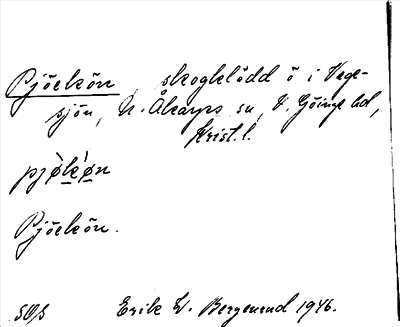 Pjöekön, skogklädd ö i Vege-
sjön, N. Åkarps sn, V. Göinge hd,
Krist. l.
pjø̀k'øn
Pjöekön.
Erik W. Bergenrud 1946.